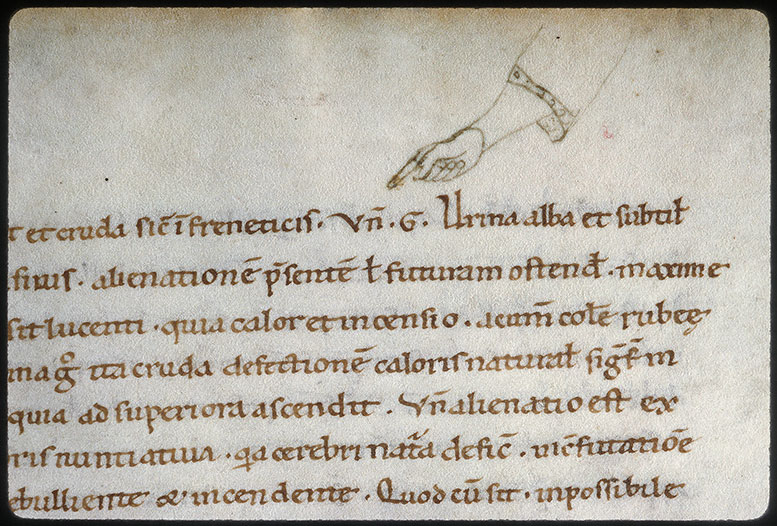 t et cruda sic̄ ī freneticis · Vn̄ · G · Urina alba et subtil̵
finis · alienationē p̄sentē ł futuram ostend̵ · maxime
sit lucenti · quia calor et incensio · acum̄ col̵e rubeę
mag̊ ita cruda defectionē caloris natural̵
quia ad superiora ascendit · Vn̄ alienatio est ex
ris nuntiatiua · cerebri defic̄
ebulliente & incendente · Quod cū sit · inpossibile